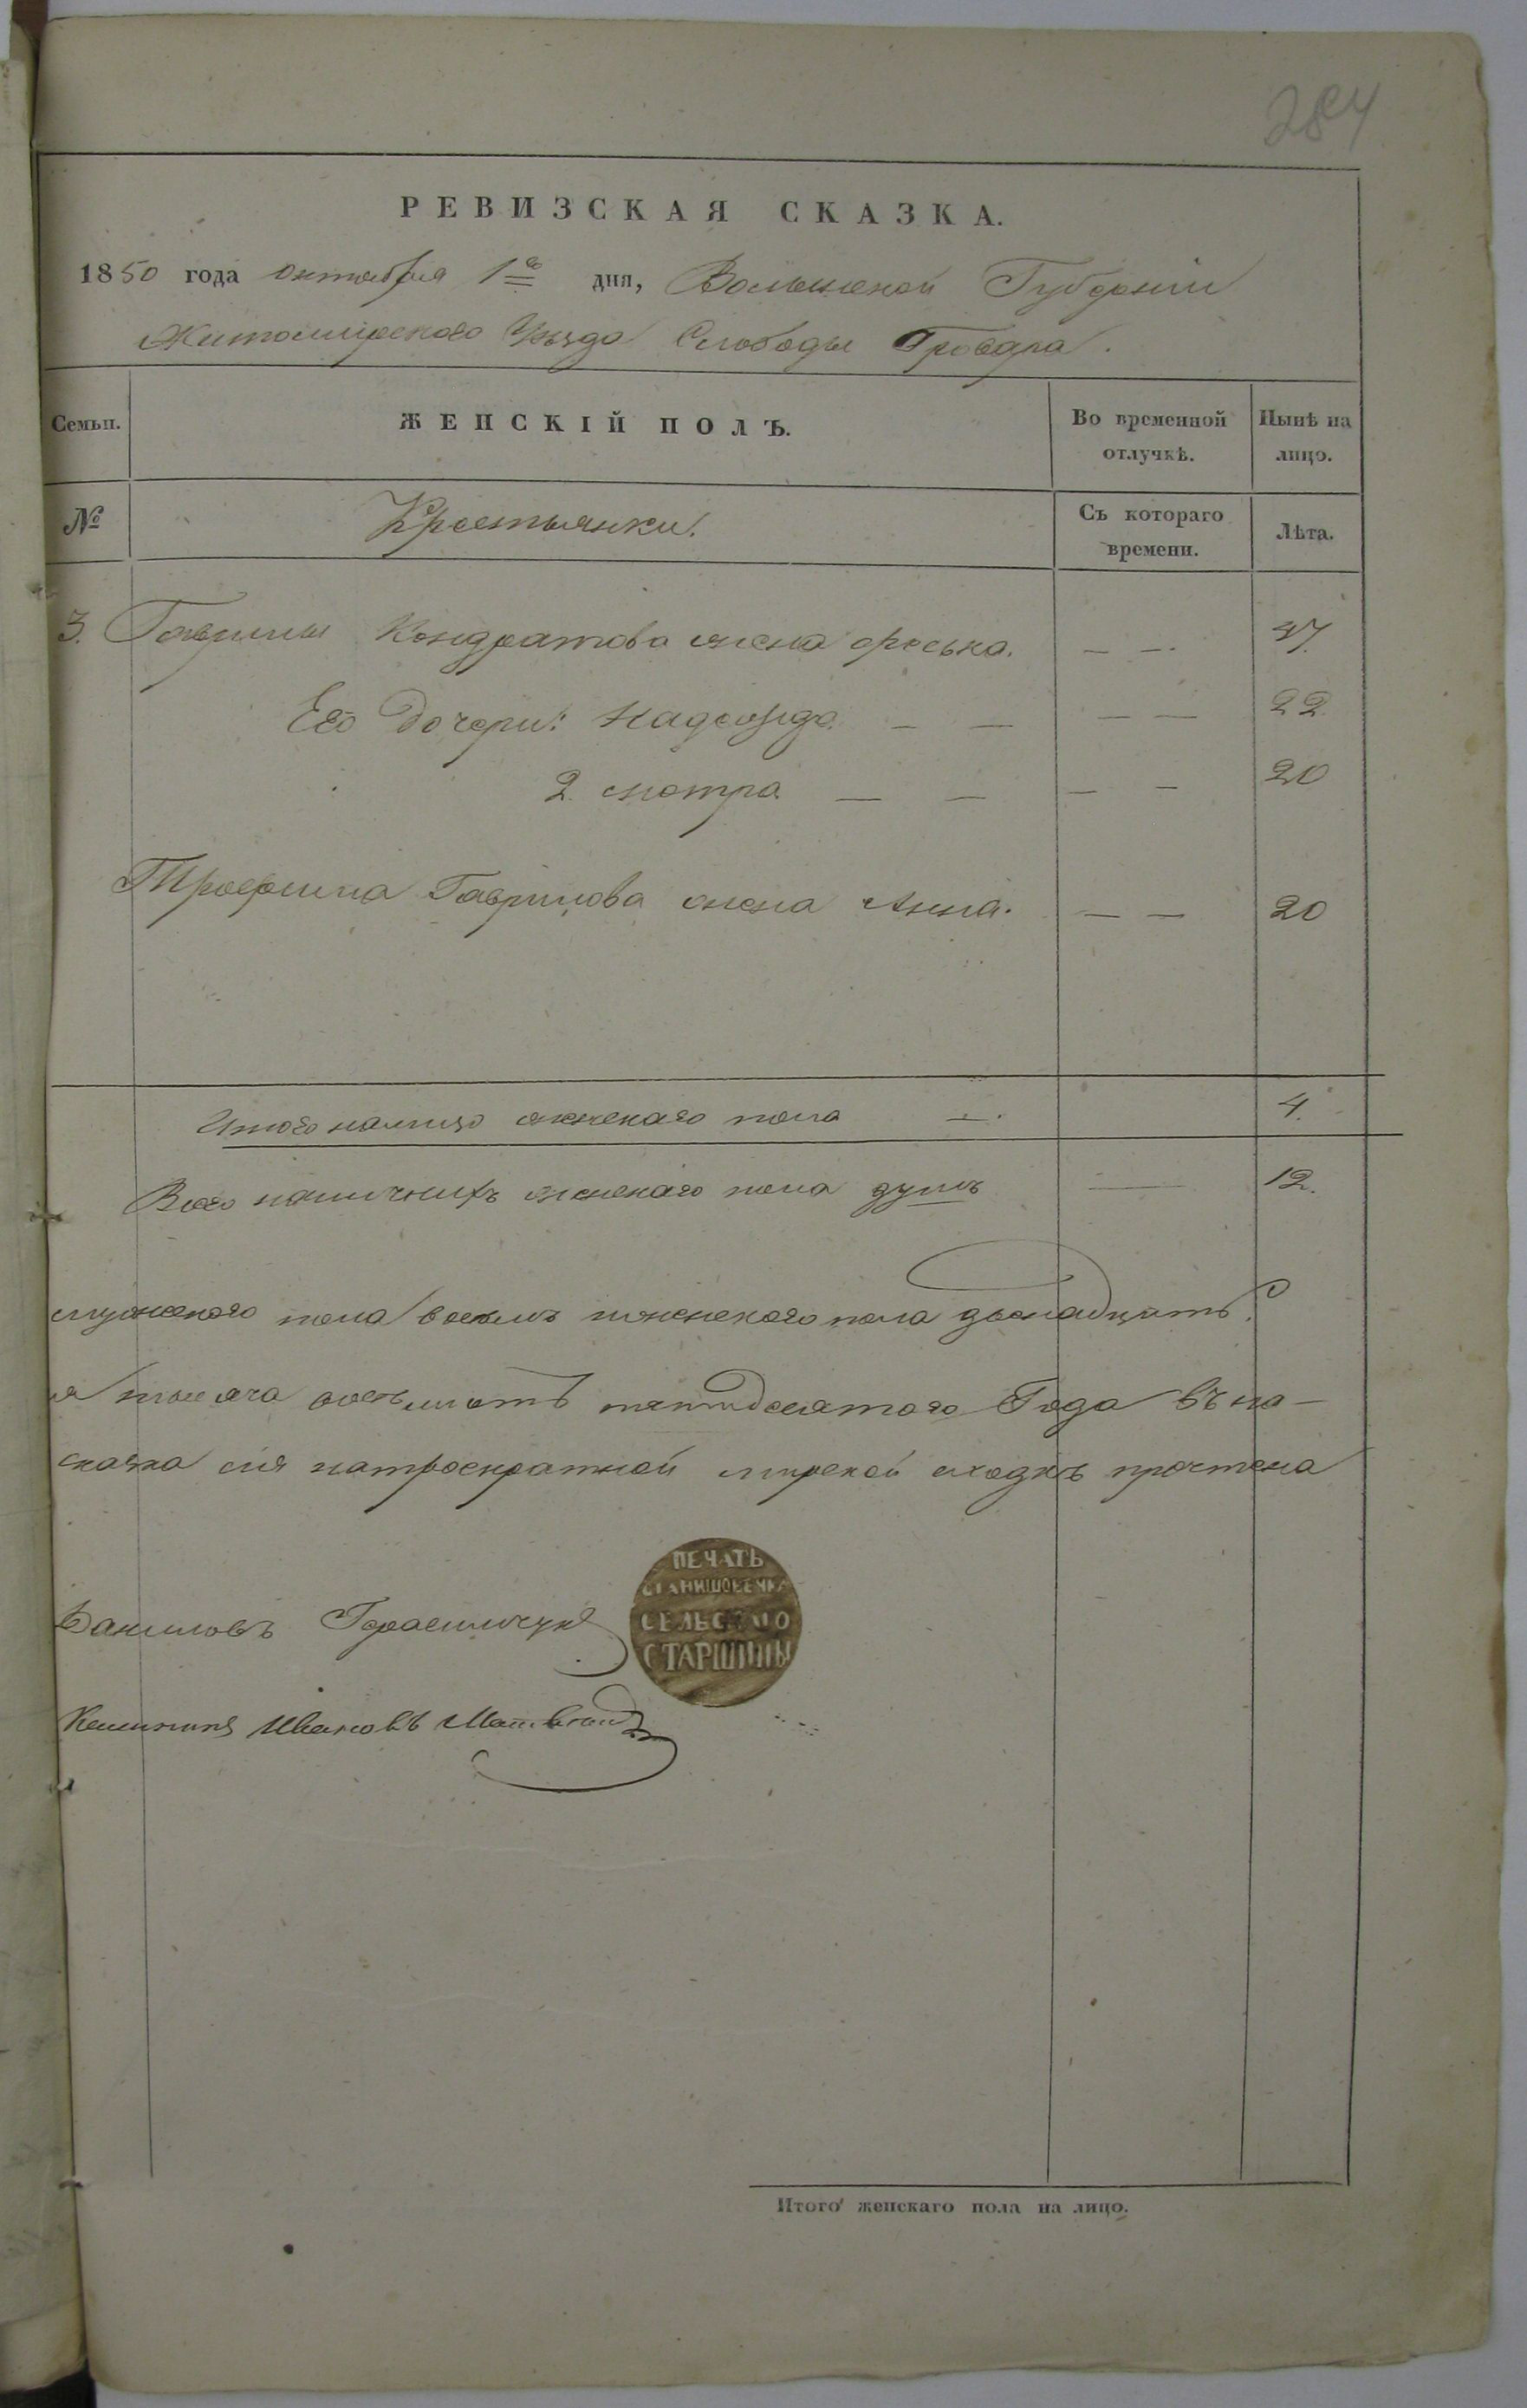 284
РЕВИЗСКАЯ СКАЗКА.
1850 года октября 1го дня, Волынской Губерніи
Житомирскаго Уѣзда Слободы
Семьи. ЖЕНСКІЙ ПОЛЪ. Во временной отлучкѣ. Нынѣ на лицо.
№ Крестьянки. Съ котораго времени. Лѣта.
3. Гаврилы Кондратова жена Фроська. — —
Его дочери: Надежда — — — — 22
2. Мотра — — — — 20
Трофима Гаврилова жена Анна. — — 20
Итого налицо женскаго пола — 4.
Всего наличныхъ женскаго пола душъ — 12.
мужескаго пола восемь женскаго пола двенадцать.
я тысяча восемьсотъ пятидесятого Года въ на-
сказка сія на троекратной мирской сходкѣ прочтена
ПЕЧАТЬ
СЕЛЬСКАГО
СТАРШИНЫ
Даниловъ Герасимчукъ
Ивановъ
Итого женскаго пола на лицо.